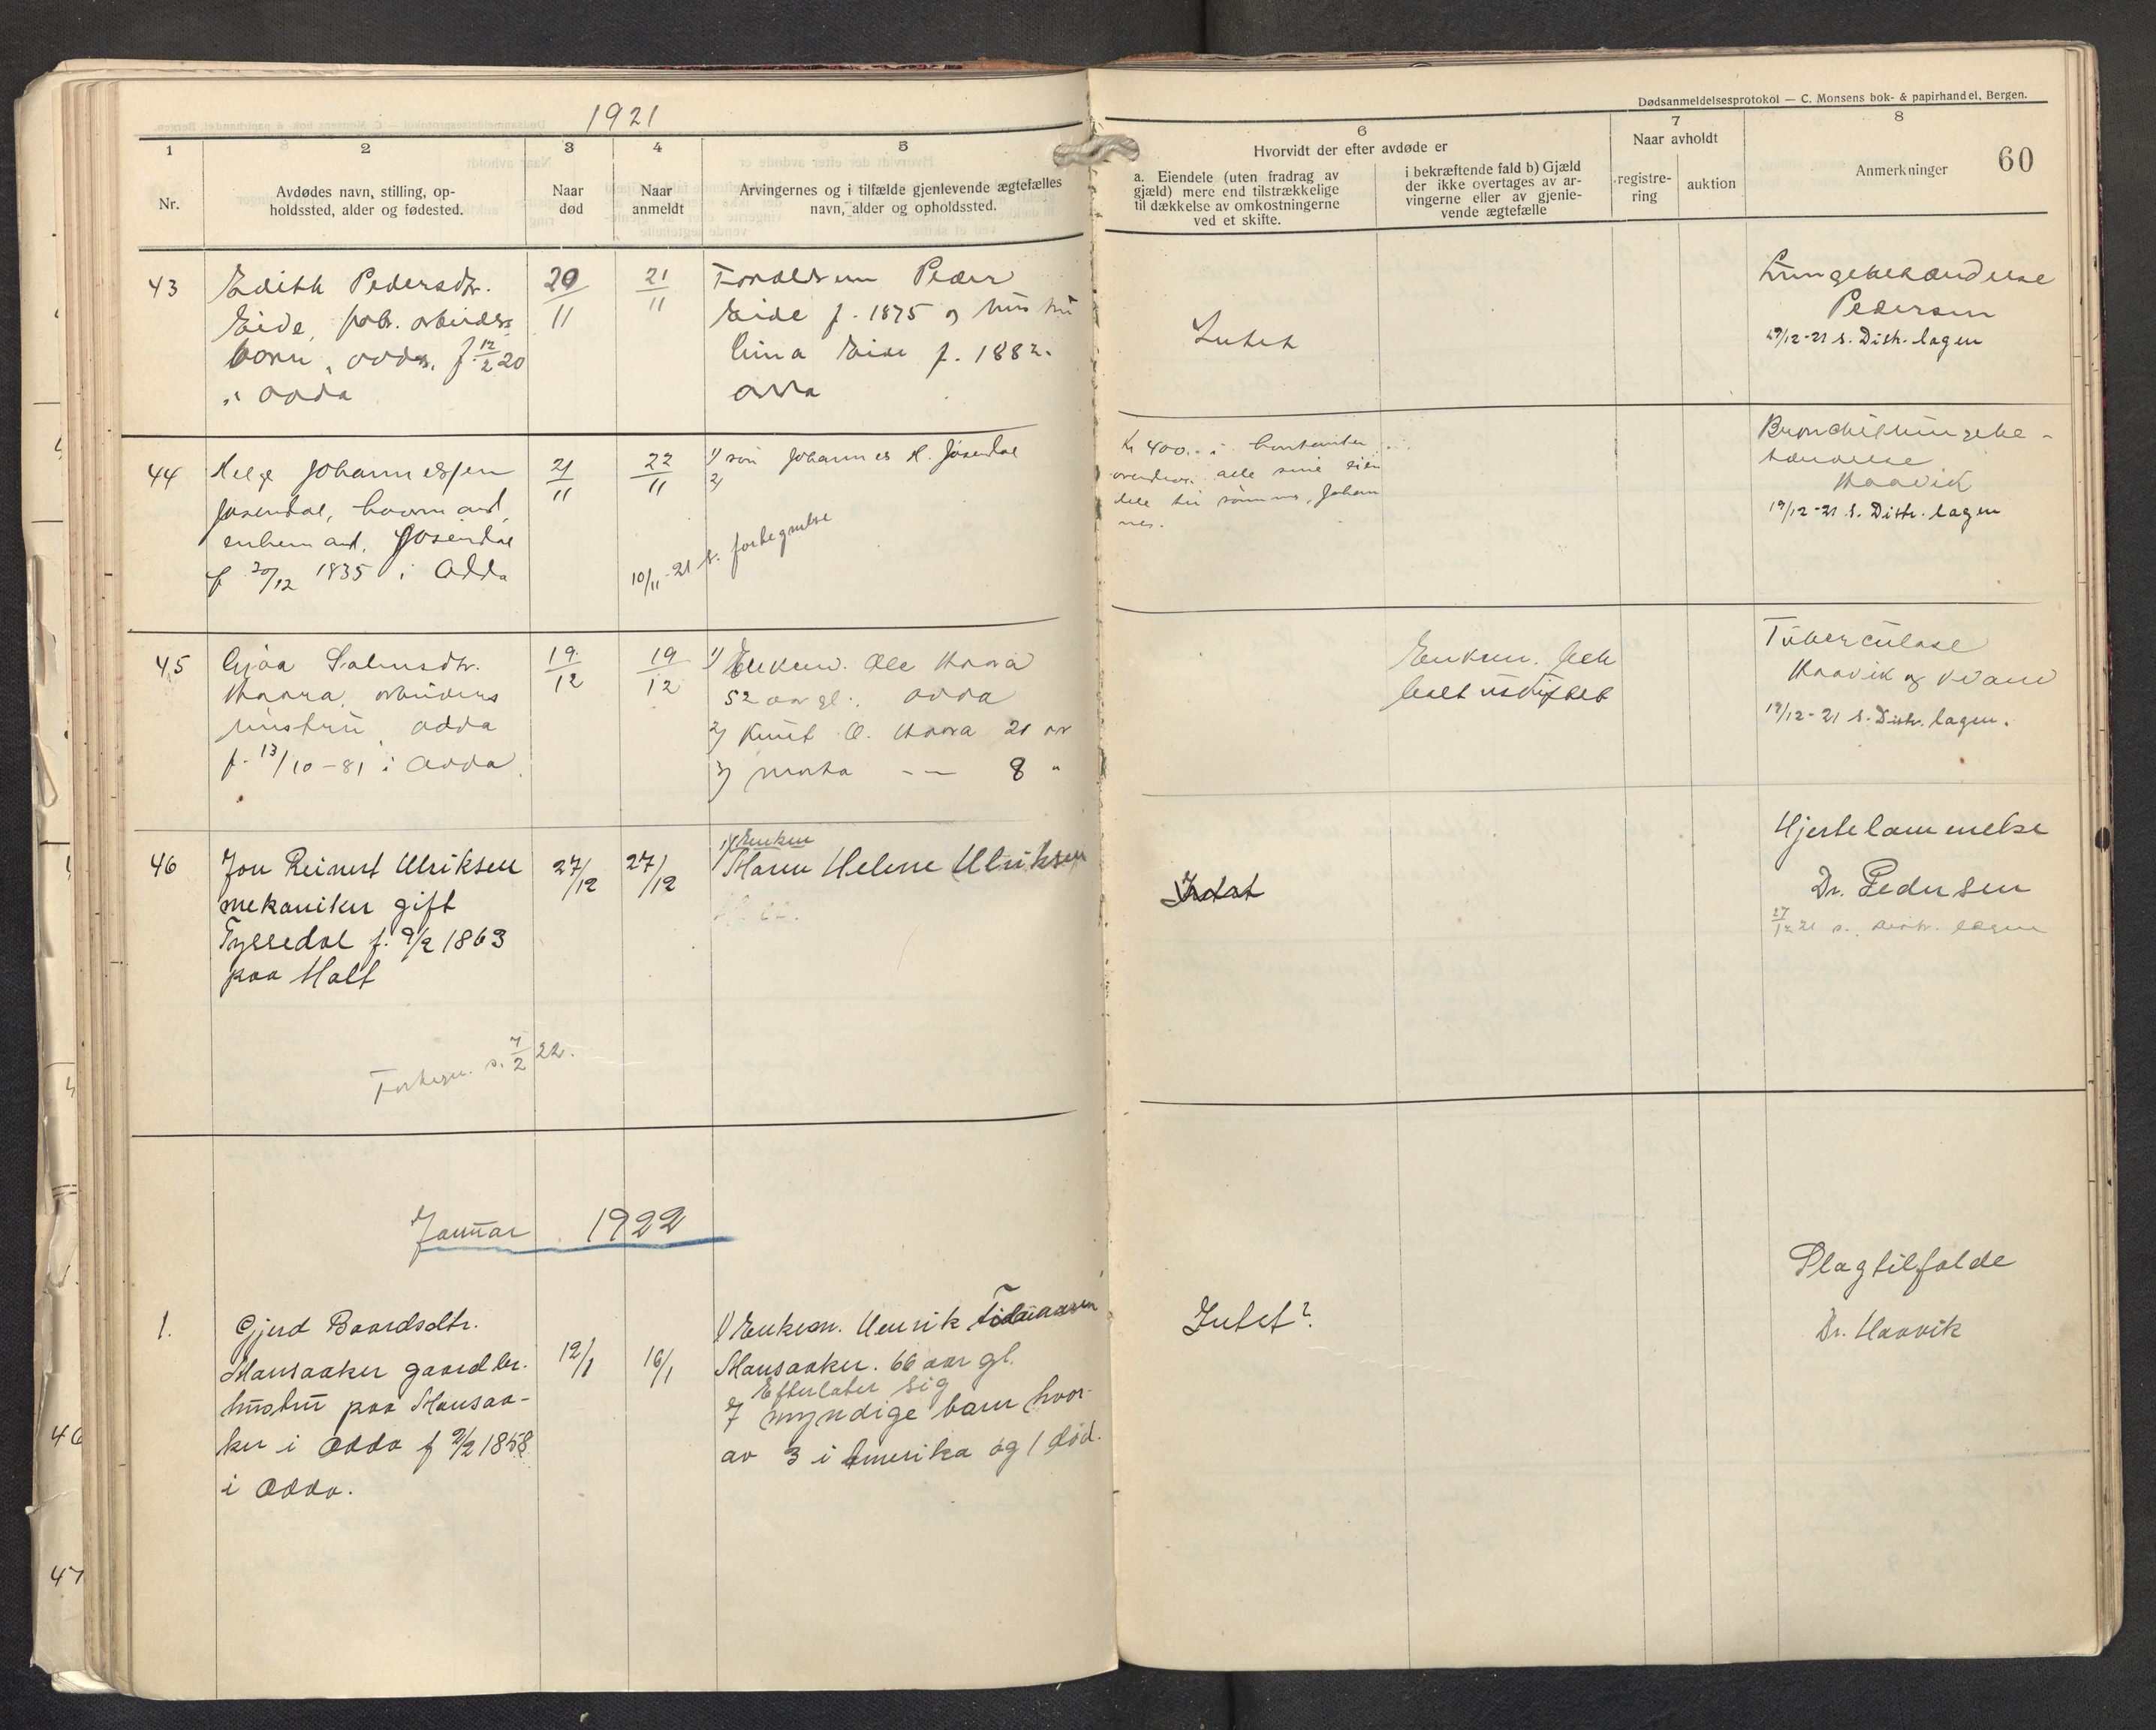 1921
Dødsanmeldelsesprotokol — C. Monsens bok- & papirhandel, Bergen.
60
1
Nr.
2
Avdødes navn, stilling, op-
holdssted, alder og fødested.
3
Naar
død
4
Naar
anmeldt
5
Arvingernes og i tilfælde gjenlevende ægtefælles
navn, alder og opholdssted.
6
Hvorvidt der efter avdøde er
a. Eiendele (uten fradrag av
gjæld) mere end tilstrækkelige
til dækkelse av omkostningerne
ved et skifte.
i bekræftende fald b) Gjæld
der ikke overtages av ar-
vingerne eller av gjenle-
vende ægtefælle
7
Naar avholdt
registre-
ring
auktion
8
Anmerkninger
43
Edith Pedersdtr.
Eide, fabr. arbeiders
barn, Odda, f. 12/2 20
i Odda
20/11
21/11
Forældrene Peder
Eide f. 1875 og hustru
Eide f. 1882.
Odda
Intet
Lungebetændelse
Pedersen
19/12-21 s. Distr. lægen
44
Helge Johannessen
Jøsendal, kaarmand,
enkemand, Jøsendal
f. 20/12 1835 i Odda
21/11
22/11
1) søn Johannes H. Jøsendal
2)
10/11-21 s. fortegnelse
Kr 400.- i kontanter
overdrog alle sine eien
dele til sønnen, Johan
nes.
Bronchitlungebe-
tændelse
Haavik
19/12-21 s. Distr. lægen
45
Gjøa Salmsdtr.
Haara, arbeiders
hustru, Odda
f. 13/10-81 i Odda.
19/12
19/12
1) Enkem. Ole Haara
52 aar gl. Odda
2) Knut O. Haara 21 aar
3) Marta -- 8 "
Enkem. beh
boet uskiftet
Tuberculose
Haavik og
19/12-21 s. Distr. lægen.
46
Jon Reinert Ulriksen
mekaniker gift
Tyssedal f. 9/2 1863
paa Holt
27/12
27/12
1) Enken
Maren Helene Ulriksen
Intet
Hjertelammelse
Dr. Pedersen
27/12 21 s. Distr. lægen
Fortegn. s. 7/2 22.
Januar 1922
1.
Gjerd Baardsdtr.
Mansaaker gaardbr.
hustru paa Mansaa-
ker i Odda f 2/2 1858
i Odda.
12/1
16/1
1) Enkem. Henrik
Mansaaker. 66 aar gl.
Efterlater sig
7 myndige barn hvor-
av 3 i Amerika og 1 død.
Intet?
Slagtilfælde
Dr. Haavik
46
47